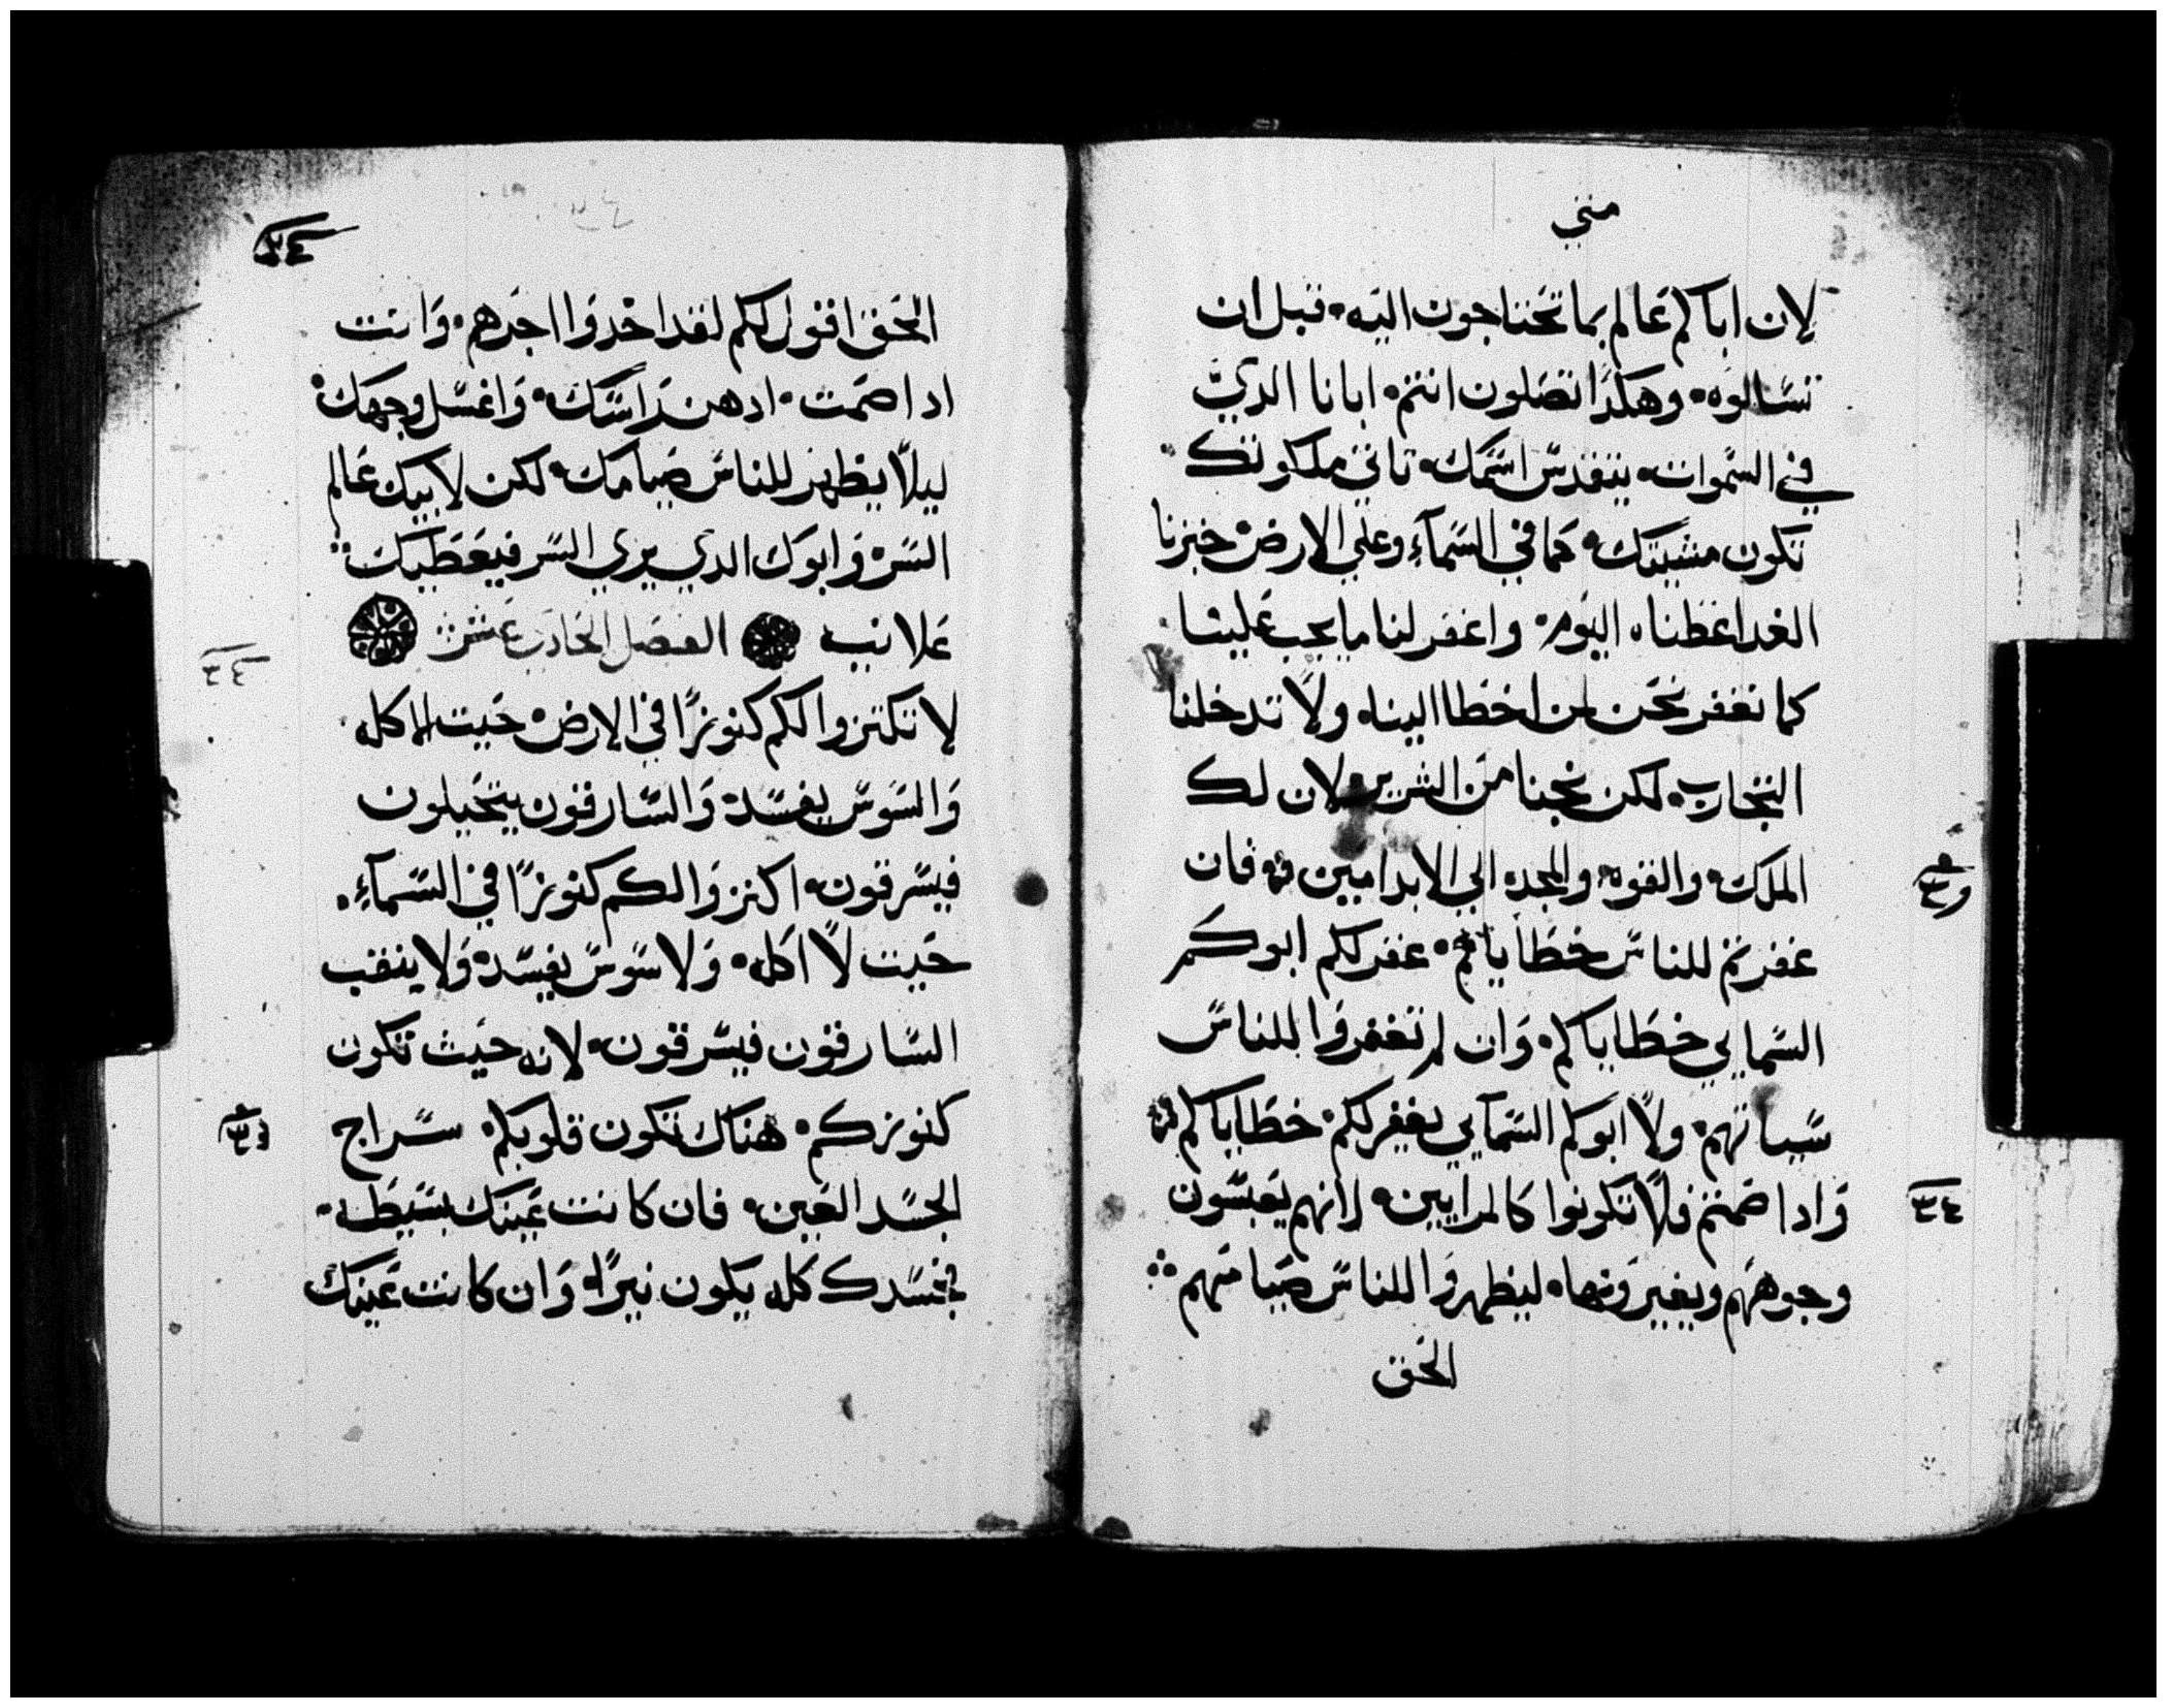 متي
لان اباكم عالم بما تحتاجون اليه قبل ان
تسالوه وهكذا تصلون انتم ابانا الدي
في السموات يتقدس اسمك تاتي ملكوتك
تكون مشيتك كما في السمآء وعلي الارض خبزنا
الغد اعطناه اليوم واغفر لنا ما يجب علينا
كما نغفر نحن لمن اخطا الينا ولا تدخلنا
التجارب لكن نجنا من الشرير لان لك
الملك والقوه والمجد الي الابد امين فان
غفرتم للناس خطاياهم غفر لكم ابوكم
السمايي خطاياكم وان لم تغفروا للناس
سياتهم ولا ابوكم السمآيي يغفر لكم خطاياكم
وادا صمتم فلا تكونوا كالمرايين لانهم يعبسون
وجوههم ويغيرونها ليظهروا للناس صيامهم
الحق
٣٤
الحق اقول لكم لقد اخدوا اجرهم وانت
ادا صمت ادهن راسك واغسل وجهك
ليلا يظهر للناس صيامك لكن لابيك عالم
السر وابوك الدي يري السر فيعطيك
علانيه الفصل الحادي عشر
لا تكتنزوا لكم كنوزا في الارض حيت الاكله
والسوس يفسد والسارقون يتحيلون
فيسرقون اكنزوا لكم كنوزا في السمآء
حيت لا اكله ولا سوس يفسد ولا ينقب
السارقون فيسرقون لانه حيث تكون
كنوزكم هناك تكون قلوبكم سراج
الجسد العين فان كانت عينك بسيطه
فجسدك كله يكون نيرا وان كانت عينك